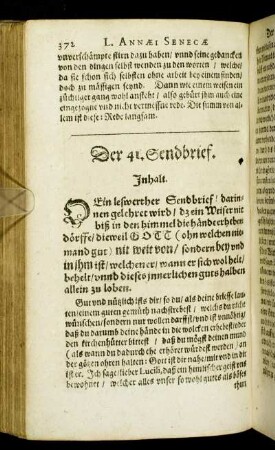 372 L. ANNÆI SENECÆ
vnverschämpte stirn dazu haben/ vnnd seine gedancken
von den dingen selbst wenden zu den worten / welche/
da sie schon sich selbsten ohne arbeit bey einem finden/
doch zu mässigen seynd. Dann wie einem weisen ein
züchtiger gang wohl anstehet / also gebürt ihm auch eine
eingezogne vnd nicht vermessne rede. Die summ von al-
lem ist diese: Rede langsam.
Der 41. Sendbrief.
Inhalt.
EIn leswerther Sendbrief/ darin-
nen gelehret wird/ dz ein Weiser nit
biß in den himmel die händ erheben
dörffe/ dieweil GOTT (ohn welchen nie-
mand gut) nit weit von/ sondern bey vnd
in ihm ist/ welchen er/ wann er sich wol helt/
behelt/ vnnd dieses innerlichen guts halben
allein zu loben.
Gut vnd nützlich ists dir/ so du/ als deine briefe lau-
ten/ einem guten gemüth nachstrebest / welchs du nicht
wünschen/ sondern nur wollen darffst/ vnd ist vnnöhtig/
daß du darumb deine hände in die wolcken erhebest oder
den kirchenhütter bittest / daß du mögst deinen mund
(als wann du dadurch ehe erhöret würdest werden / an
der götzen ohren halten: Gott ist dir nahe/ mit vnd in dir
ist er. Ich sage/ lieber Lucili/ daß ein heimlischer geist vns
bewohnet / welcher alles vnser so wohl guttes als böses
thun